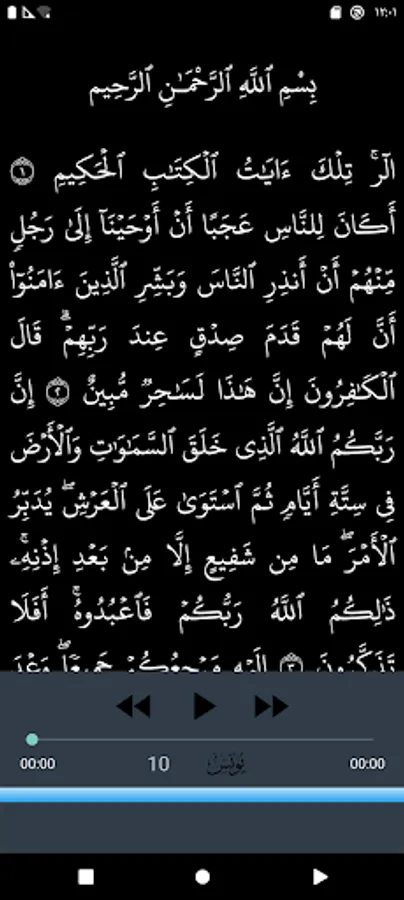 ١٢:٠١
بِسْمِ ٱللَّهِ ٱلرَّحْمَـٰنِ ٱلرَّحِيمِ
الٓرۚ تِلْكَ ءَايَـٰتُ ٱلْكِتَـٰبِ ٱلْحَكِيمِ ١
أَكَانَ لِلنَّاسِ عَجَبًا أَنْ أَوْحَيْنَآ إِلَىٰ رَجُلٍ
مِّنْهُمْ أَنْ أَنذِرِ ٱلنَّاسَ وَبَشِّرِ ٱلَّذِينَ ءَامَنُوٓا۟
أَنَّ لَهُمْ قَدَمَ صِدْقٍ عِندَ رَبِّهِمْۗ قَالَ
ٱلْكَـٰفِرُونَ إِنَّ هَـٰذَا لَسَـٰحِرٌ مُّبِينٌ ٢ إِنَّ
رَبَّكُمُ ٱللَّهُ ٱلَّذِى خَلَقَ ٱلسَّمَـٰوَٰتِ وَٱلْأَرْضَ
فِى سِتَّةِ أَيَّامٍ ثُمَّ ٱسْتَوَىٰ عَلَى ٱلْعَرْشِۖ يُدَبِّرُ
ٱلْأَمْرَۖ مَا مِن شَفِيعٍ إِلَّا مِنۢ بَعْدِ إِذْنِهِۦۚ
ذَٰلِكُمُ ٱللَّهُ رَبُّكُمْ فَٱعْبُدُوهُۚ أَفَلَا
تَذَكَّرُونَ ٣ إِلَيْهِ مَرْجِعُكُمْ جَمِيعًاۖ وَعْدَ
00:00 10 يونس 00:00